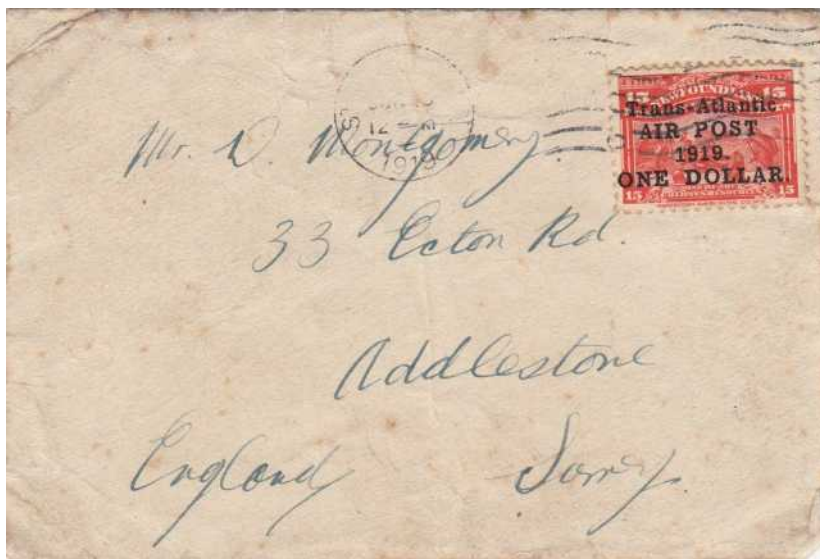 15 NEWFOUNDLAND 15
Trans-Atlantic
AIR POST
1919.
ONE DOLLAR.
15 15
12
1919
Mr. D. Montgomery
33 Ecton Rd.
Addlestone
England Surrey